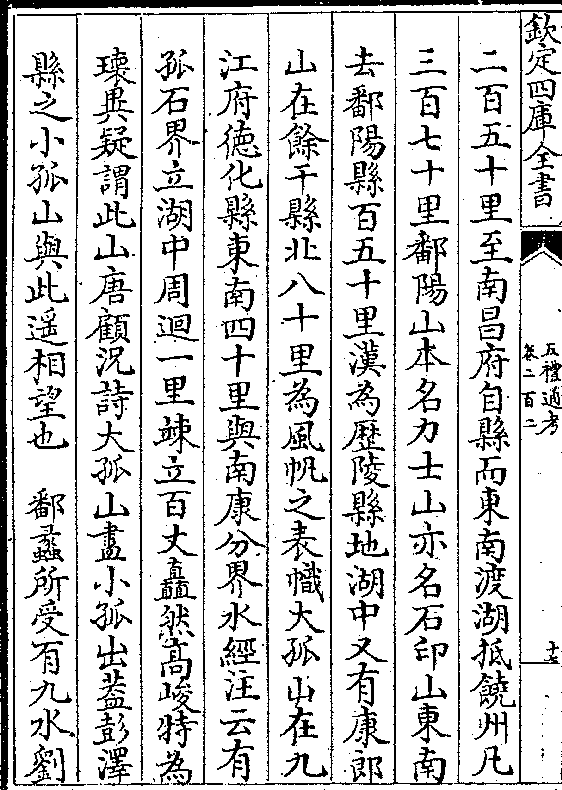 欽定四庫全書
五禮通考
卷二百二
十七
二百五十里至南昌府自縣而東南渡湖抵饒州凡
三百七十里鄱陽山本名力士山亦名石印山東南
去鄱陽縣百五十里漢為歴陵縣地湖中又有康郎
山在餘干縣北八十里為風帆之表幟大孤山在九
江府德化縣東南四十里與南康分界水經注云有
孤石界立湖中周迴一里竦立百丈矗然高峻特為
瓌異疑謂此山唐顧況詩大孤山盡小孤出葢彭澤
縣之小孤山與此遥相望也 鄱蠡所受有九水劉